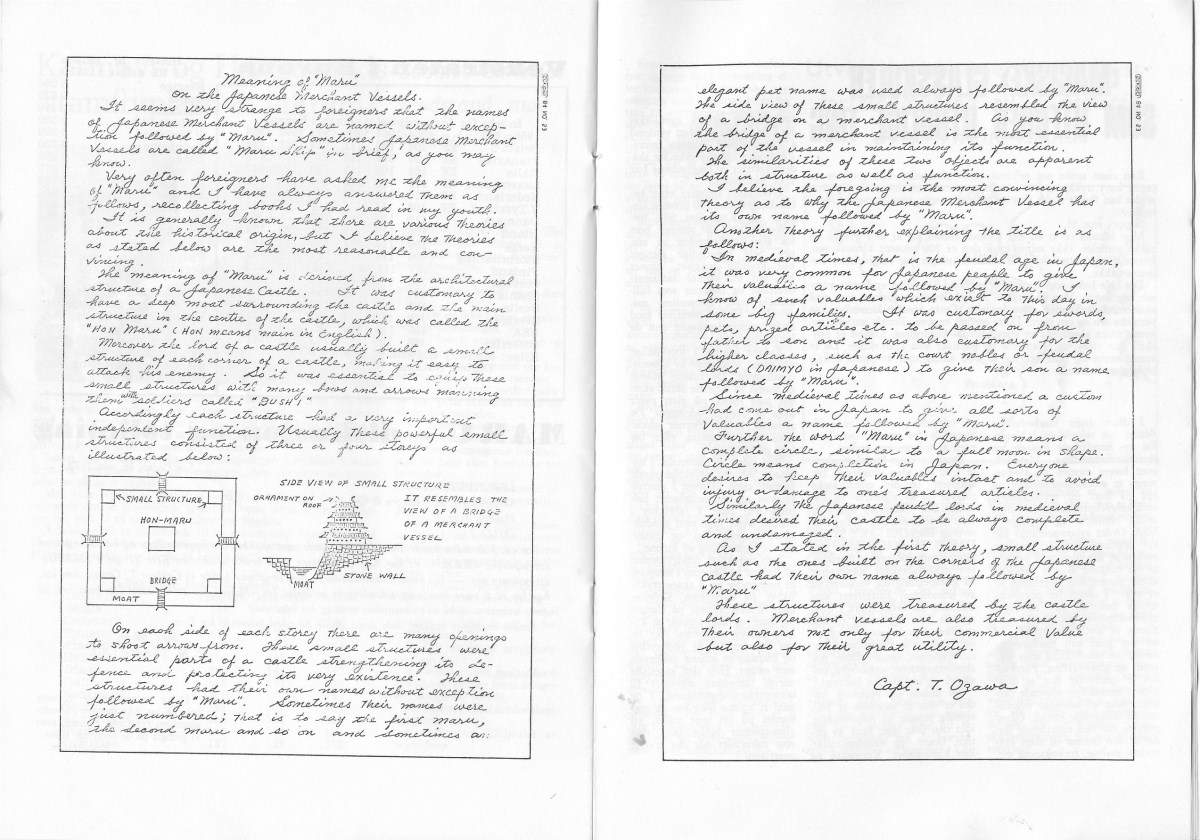 Meaning of "Maru"
On the Japanese Merchant Vessels.
It seems very strange to foreigners that the names
of Japanese Merchant Vessels are named without excep-
tion followed by "Maru". Sometimes Japanese Merchant
Vessels are called "Maru Ship" in brief, as you may
know.
Very often foreigners have asked me the meaning
of "Maru" and I have always answered them as
follows, recollecting books I had read in my youth.
It is generally known that there are various theories
about the historical origin, but I believe the theories
as stated below are the most reasonable and con-
vincing.
The meaning of "Maru" is derived from the architectural
structure of a Japanese Castle. It was customary to
have a deep moat surrounding the castle and the main
structure in the centre of the castle, which was called the
"HON Maru" (HON means main in English).
Moreover the lord of a castle usually built a small
structure of each corner of a castle, making it easy to
attack his enemy. So it was essential to equip these
small structures with many bows and arrows manning
them with soldiers called "BUSHI"
Accordingly each structure had a very important
independent function. Usually these powerful small
structures consisted of three or four storeys as
illustrated below:
SMALL STRUCTURE
HON-MARU
BRIDGE
MOAT
SIDE VIEW OF SMALL STRUCTURE
ORNAMENT ON
ROOF
IT RESEMBLES THE
VIEW OF A BRIDGE
OF A MERCHANT
VESSEL
STONE WALL
MOAT
On each side of each storey there are many openings
to shoot arrows from. These small structures were
essential parts of a castle strengthening its de-
fence and protecting its very existence. These
structures had their own names without exception
followed by "Maru". Sometimes their names were
just numbered; that is to say the first maru,
the second maru and so on and sometimes an
elegant pet name was used always followed by "Maru".
The side view of these small structures resembled the view
of a bridge on a merchant vessel. As you know
the bridge of a merchant vessel is the most essential
part of the vessel in maintaining its function.
The similarities of these two objects are apparent
both in structure as well as function.
I believe the foregoing is the most convincing
theory as to why the Japanese Merchant Vessel has
its own name followed by "Maru".
Another theory further explaining the title is as
follows:
In medieval times, that is the feudal age in Japan,
it was very common for Japanese people to give
their valuables a name followed by "Maru". I
know of such valuables which exist to this day in
some big families. It was customary for swords,
pets, prized articles etc. to be passed on from
father to son and it was also customary for the
higher classes, such as the court nobles or feudal
lords (DAIMYO in Japanese) to give their son a name
followed by "Maru".
Since medieval times as above mentioned a custom
had come out in Japan to give all sorts of
valuables a name followed by "Maru".
Further the word "Maru" in Japanese means a
complete circle, similar to a full moon in shape.
Circle means completion in Japan. Everyone
desires to keep their valuables intact and to avoid
injury or damage to one's treasured articles.
Similarly the Japanese feudil lords in medieval
times desired their castle to be always complete
and undamaged.
As I stated in the first theory, small structure
such as the ones built on the corners of the Japanese
castle had their own name always followed by
"Maru"
These structures were treasured by the castle
lords. Merchant vessels are also treasured by
their owners not only for their commercial value
but also for their great utility.
Capt. T. Ozawa